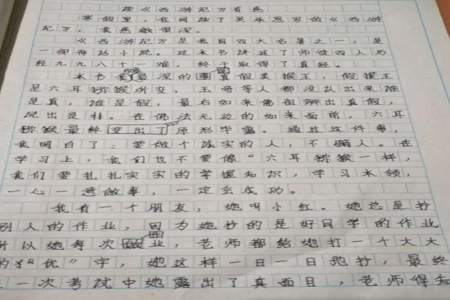 读《西游记》有感
寒假里，我阅读了吴承恩写的《西游
记》，我感触很深。
《西游记》是我国四大名著之一，是
一部神话小说。这本书讲述了师徒四人历
经九九八十一难，终于取得了真经。
本书最深的是真假美猴王，假猴王
是六耳猕猴所变，玉帝等人都没认出来谁
是真，谁是假，最后如来佛祖辨出真假，
说出是非。在佛法无边的如来面前，六耳
猕猴最终变出了原形毕露。通过这件事，
我明白了：要做个诚实的人，不骗人。在
学习上，我们也不要像“六耳猕猴一样，
我们要扎扎实实的掌握知识，学习本领，
一心一意做事，一定会成功。
我有一个朋友，她叫小红。她总是抄
别人的作业，因为她抄的是好同学的作业
所以她每次作业，老师都给她打一个大大
的“优”字，她这样一日一日抄，最终
一次考试中她露出了真面目，老师得知